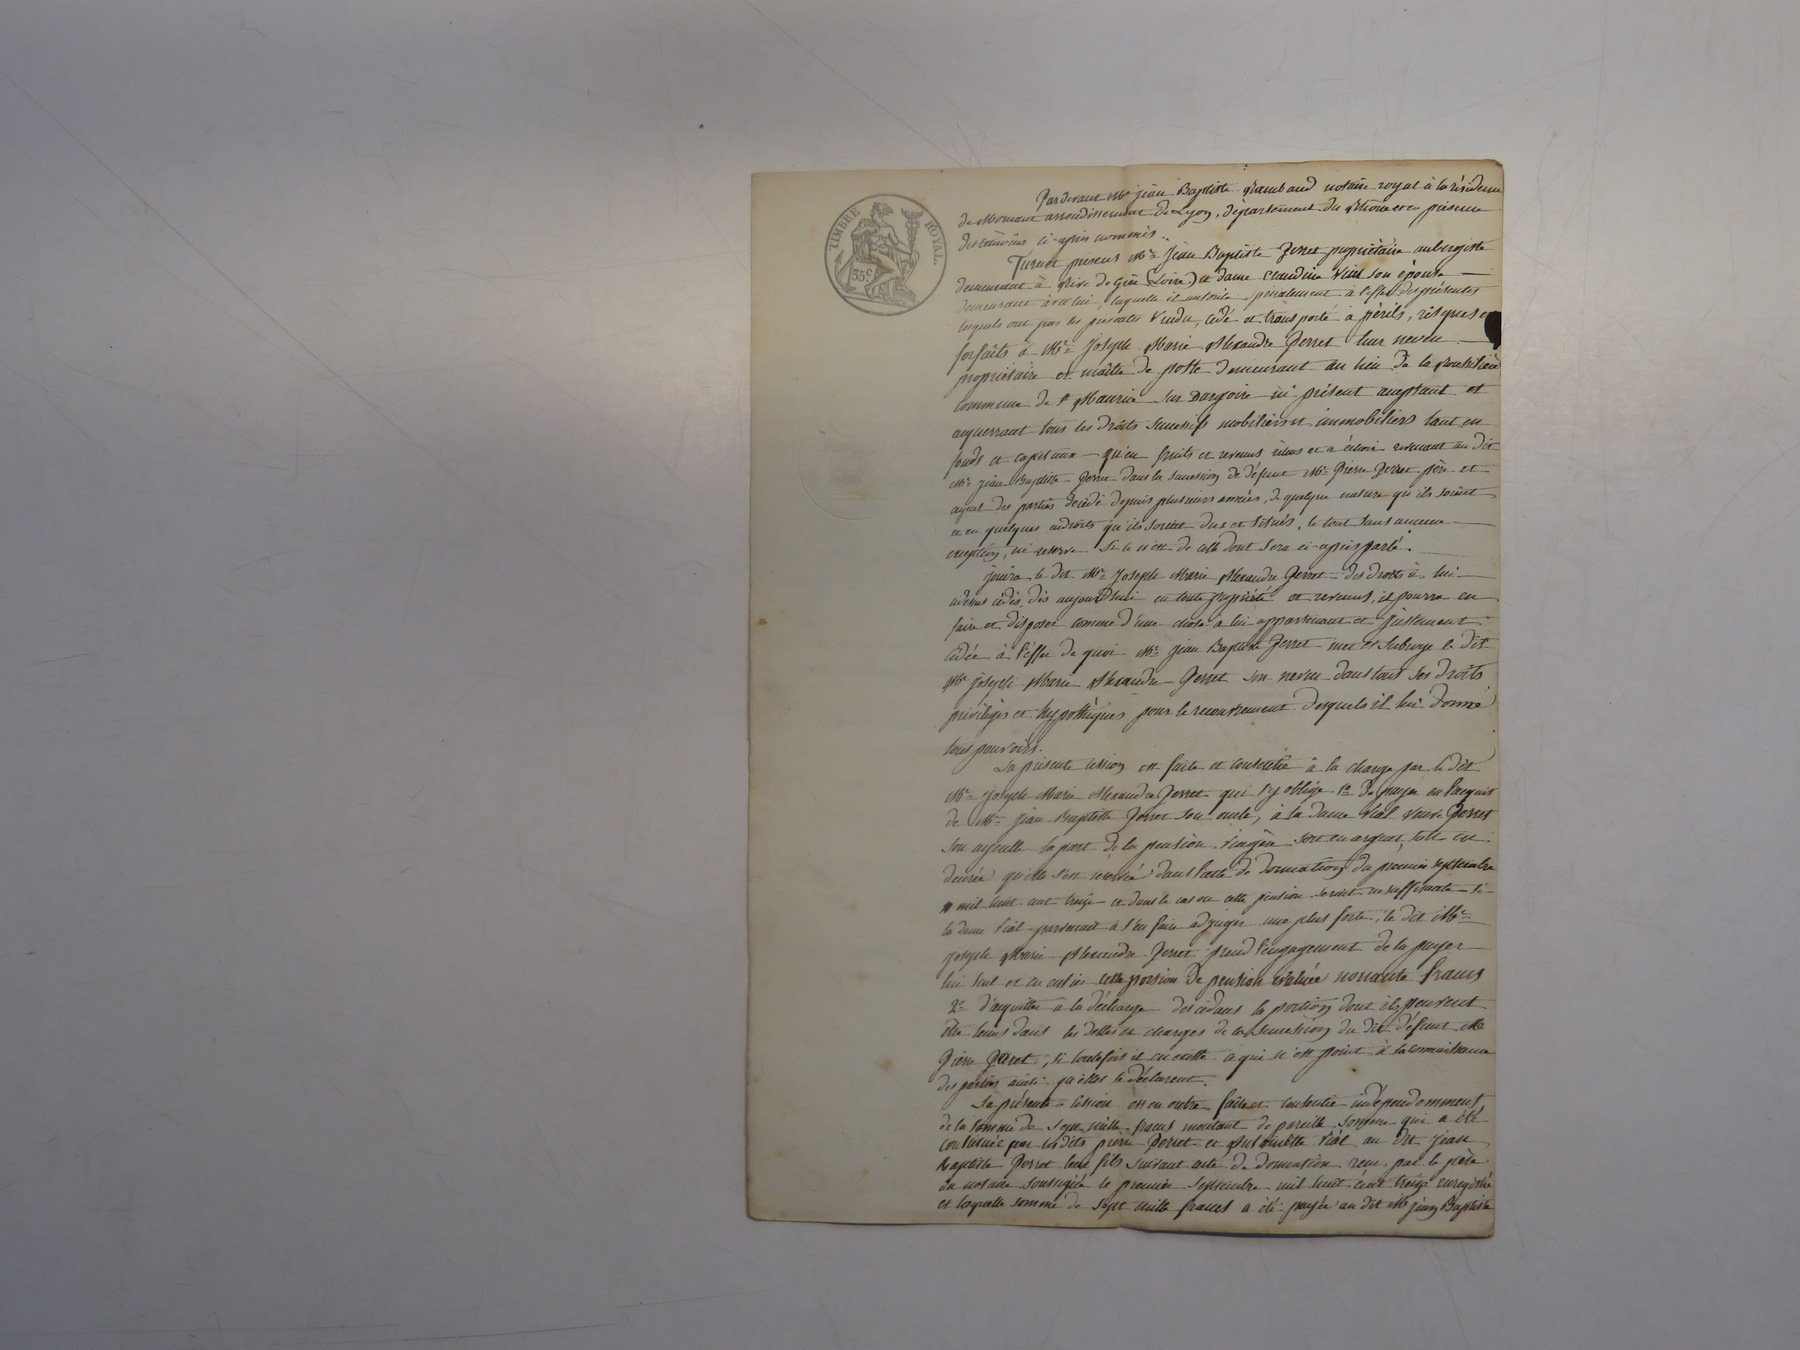 TIMBRE ROYAL.
35c
Pardevant Me jean Baptiste notaire royal à la résidence
de Mornant arrondissement de Lyon, département du Rhône et en présence
des témoins ci-après nommés.
Furent présens Mr Jean Baptiste Perret propriétaire aubergiste
demeurant à Rive de Gier (Loire) et dame Claudine Viàl son épouse
demeurant avec lui, laquelle il autorise spécialement à l'effet des présentes
lesquels ont par les présentes vendu, cédé et transporté à périls, risques et
forfaits à Mr Joseph Marie Alexandre Perret leur neveu
propriétaire et maître de poste demeurant au lieu de la
commune de St Maurice sur Dargoire ici présent acceptant et
acquerrant tous les droits successifs mobiliers et immobiliers tant en
fonds et capitaux qu'en fruits et revenus échus et à échoir revenant au dit
Mr jean Baptiste Perret dans la succession de défunt Mr Pierre Perret père et
ayeul des parties décédé depuis plusieurs années, de quelque nature qu'ils soient
et en quelques endroits qu'ils soient dus et situés, le tout sans aucune
exception, ni réserve si ce n'est de celle dont sera ci-après parlé.
jouira le dit Mr Joseph Marie Alexandre Perret des droits à lui
cidessus cédés dès aujourdhui en toute propriété et revenus, il pourra en
faire et disposer comme d'une chose à lui appartenant et justement
cédée à l'effet de quoi Mr jean Baptiste Perret met et subroge le dit
Mr joseph Marie Alexandre Perret son neveu dans tous ses droits
privilèges et hypothèques pour le recouvrement desquels il lui donne
tous pouvoirs.
La présente cession est faite et consentie à la charge par le dit
Mr Joseph Marie Alexandre Perret qui s'y oblige 1o de payer en l'acquit
de Mr Jean Baptiste Perret son oncle, à la dame Viàl veuve Perret
son ayeulle la part de la pension viagère soit en argent, soit en
denrée qu'elle s'est réservée dans l'acte de donation du premier septembre
mil huit cent treize et dans le cas où cette pension serait insuffisante si
la dame Viàl parvenait à s'en faire adjuger une plus forte, le dit Mr
joseph Marie Alexandre Perret prend l'engagement de la payer
lui seul et en entier cette portion de pension évaluée nonante francs
2o d'acquitter à la décharge des cédans la portion dont ils peuvent
être tenus dans les dettes et charges de la succession du dit défunt Mr
Pierre Perret, si toutefois il en existe ce qui n'est point à la connaissance
des parties ainsi qu'elles le déclarent.
La présente cession est en outre faite et consentie indépendemment
de la somme de sept mille francs montant de pareille somme qui a été
constituée par lesdits pierre Perret et Antoinette Viàl au dit jean
Baptiste Perret leur fils suivant acte de donation reçu par le père
du notaire soussigné le premier septembre mil huit cent treize enregistré
et laquelle somme de sept mille francs a été payée au dit Mr jean Baptiste